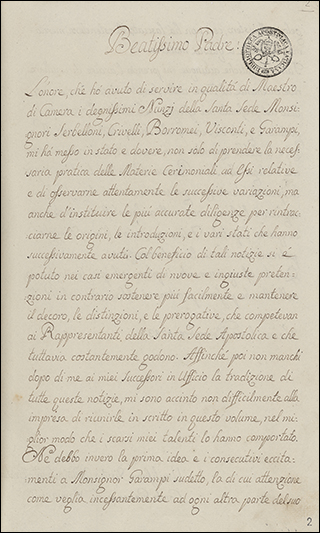 2
Beatissimo Padre:
L'onore, che ho avuto di servire in qualità di Maestro
di Camera i degnissimi Nunzj della Santa Sede Monsi-
gnori Serbelloni, Crivelli, Borromei, Visconti, e Garampi,
mi ha messo in stato e dovere, non solo di prendere la neces-
saria pratica delle Materie Cerimoniali ad Essi relative
e di osservarne attentamente le successive variazioni, ma
anche d'instituire le più accurate diligenze per rintrac-
ciarne le origini, le introduzioni, e i varj stati che hanno
successivamente avuti. Col beneficio di tali notizie se è
potuto nei casi emergenti di nuove e ingiuste preten-
zioni in contrario sostenere più facilmente e mantenere
il decoro, le distinzioni, e le prerogative, che competevan
ai Rappresentanti della Santa Sede Apostolica e che
tuttavia costantemente godono. Affinché poi non manchi
dopo di me ai miei successori in Ufficio la tradizione di
tutte queste notizie, mi sono accinto non difficilmente alla
impresa di riunirle in scritto in questo volume, nel mi-
glior modo che i scarsi miei talenti lo hanno comportato.
Nè debbo invero la prima idea e i consecutivi eccita-
menti a Monsignor Garampi sudetto, la di cui attenzione
come veglia incessantemente ad ogni altra parte del suo
2